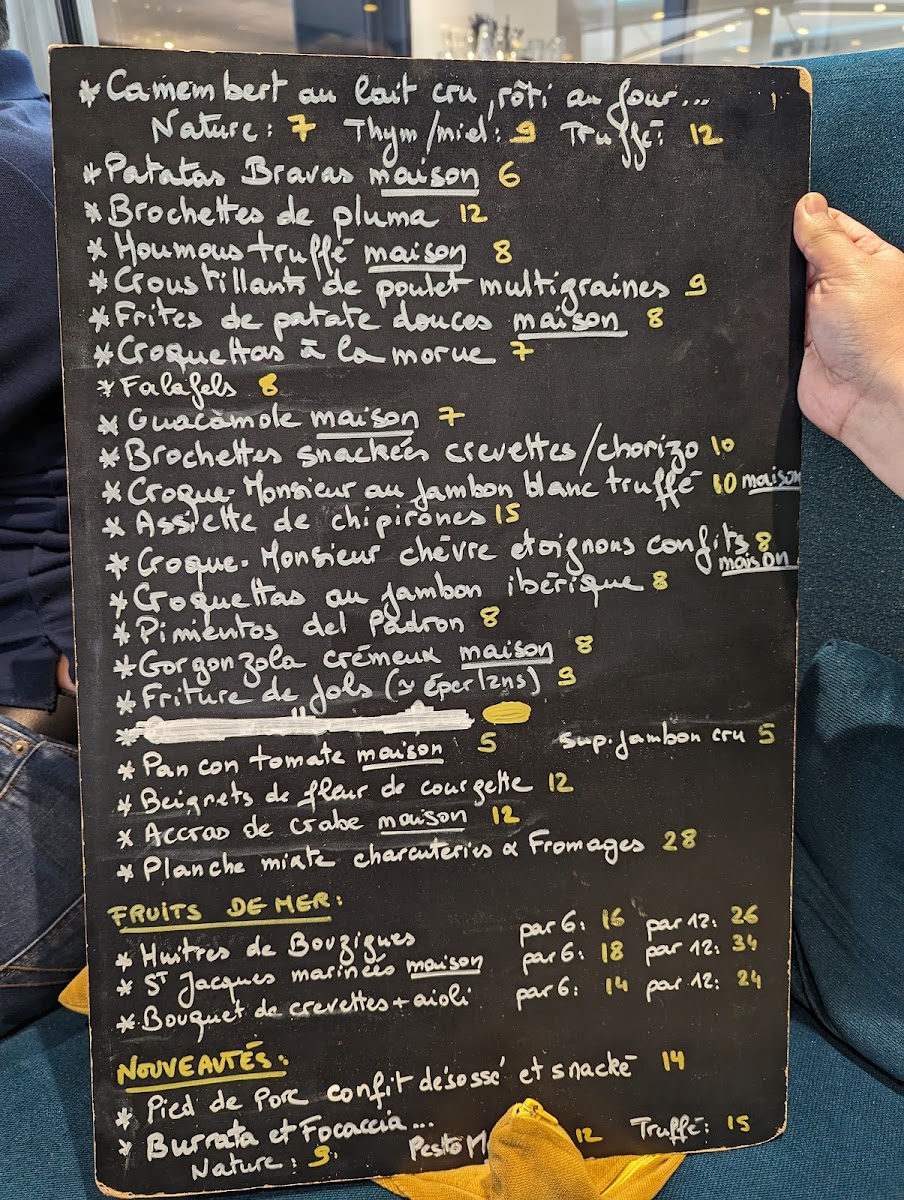 * Camembert au lait cru, rôti au four...
Nature: 7 Thym/miel: 9 Truffé: 12
* Patatas Bravas maison 6
* Brochettes de pluma 12
* Houmous truffé maison 8
* Croustillants de poulet multigraines 9
* Frites de patate douces maison 8
* Croquettas à la morue 7
* Falafels 8
* Guacamole maison 7
* Brochettes snackées crevettes/chorizo 10
* Croque-Monsieur au jambon blanc truffé 10 maison
* Assiette de chipirones 15
* Croque-Monsieur chèvre et oignons confits 8
maison
* Croquettas au jambon ibérique 8
* Pimientos del Padron 8
* Gorgonzola crémeux maison 8
* Friture de Jols (≃ éperlans) 9
*
* Pan con tomate maison 5 sup. jambon cru 5
* Beignets de fleur de courgette 12
* Accras de crabe maison 12
* Planche mixte charcuteries & Fromages 28
FRUITS DE MER:
* Huîtres de Bouzigues par 6: 16 par 12: 26
* ST Jacques marinées maison par 6: 18 par 12: 34
* Bouquet de crevettes + aïoli par 6: 14 par 12: 24
NOUVEAUTÉS:
* Pied de Porc confit désossé et snacké 14
* Burrata et Focaccia...
Nature: 9 Pesto 12 Truffé: 15